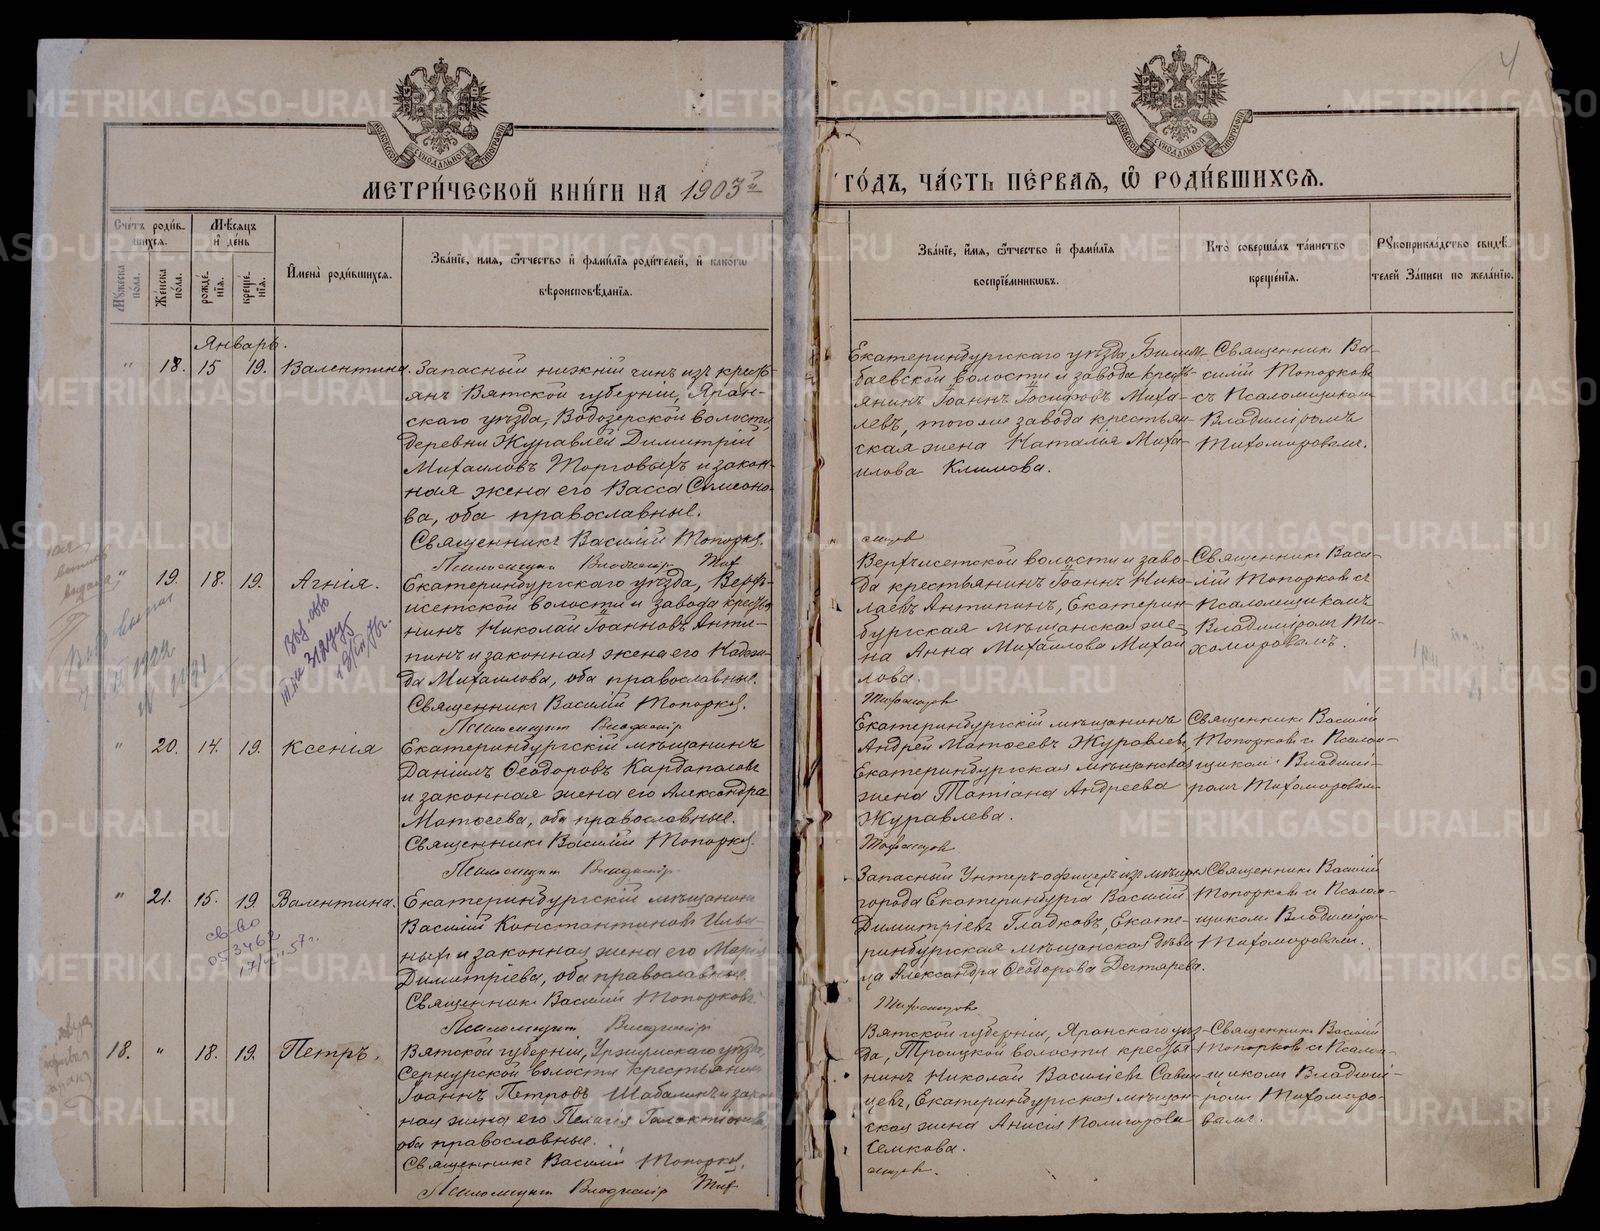 4
МЕТРИ́ЧЕСКОЙ КНИ́ГИ НА 1903 й
ГО́ДЪ, ЧА́СТЬ ПЕ́РВАЯ, Ѽ РОДИ́ВШИХСЯ.
Сче́тъ роди́вшихся.
Мꙋ́жеска по́ла.
Же́нска по́ла.
Мѣ́сяцъ и де́нь
рожде́нїѧ.
креще́нїѧ.
И҆мена̀ роди́вшихсѧ.
Зва́нїе, и҆мѧ, ѻ҆́тчество и҆ фами́лїѧ роди́телей, и҆ како́гѡ
вѣроисповѣ́данїѧ.
Зва́нїе, и҆́мѧ, ѻ҆́тчество и҆ фами́лїѧ
воспрїе́мникѡвъ.
Кто̀ соверша́лъ та́инство
креще́нїѧ.
Рꙋкоприкла́дство свидѣ́телей за́писи по жела́нїю.
Январь.
" 18. 15 19. Валентина.
Запасный нижній чинъ изъ крест-
янъ Вятской губерніи, Яран-
скаго уѣзда, Водозерской волости,
деревни Журавлей Димитрій
Михаиловъ Торговыхъ и закон-
ная жена его Васса Симеоно-
ва, оба православные.
Священникъ Василій Топорковъ.
Псаломщикъ Владиміръ Тих
Екатеринбургскаго уѣзда, Билим-
баевской волости и завода крестья-
янинъ Іоаннъ Іосифовъ Миха-
левъ, того же завода крестьян-
ская жена Наталія Миха-
илова Климова.
Священникъ Ва-
силій Топорковъ
съ Псаломщикомъ
Владиміромъ
Тихомировымъ.
" 19. 18. 19. Агнія.
Екатеринбургскаго уѣзда, Верх-
исетской волости и завода крестья-
нинъ Николай Іоанновъ Анти-
пинъ и законная жена его Надеж-
да Михаилова, оба православные.
Священникъ Василій Топорковъ.
Псаломщикъ Владиміръ
Верхъисетской волости и заво-
да крестьянинъ Іоаннъ Нико-
лаевъ Антипинъ, Екатерин-
бургская мѣщанская же-
на Анна Михаилова Михай-
лова.
Священникъ Васи-
лій Топорковъ съ
Псаломщикомъ
Владиміромъ Ти-
хомировымъ.
" 20. 14. 19. Ксенія
Екатеринбургскій мѣщанинъ
Даніилъ Ѳеодоровъ Кардаполовъ
и законная жена его Александра
Матѳеева, оба православные.
Священникъ Василій Топорковъ.
Псаломщикъ Владиміръ
Екатеринбургскій мѣщанинъ
Андрей Матѳеевъ Журавлевъ,
Екатеринбургская мѣщанская
жена Татіана Андреева
Журавлева.
Священникъ Василій
Топорковъ съ Псалом-
щикомъ Владимі-
ромъ Тихомировымъ
" 21. 15. 19 Валентина.
св-во
17/VI-57г.
Екатеринбургскій мѣщанинъ
Василій Константиновъ Ильи-
ныхъ и законная жена его Марія
Димитріева, оба православные.
Священникъ Василій Топорковъ.
Псаломщикъ Владиміръ
Запасный Унтеръ-офицеръ изъ мѣщанъ
города Екатеринбурга Василій
Димитріевъ Гладковъ, Екате-
ринбургская мѣщанская дѣви-
ца Александра Ѳеодорова Дегтярева.
Священникъ Василій
Топорковъ съ Псалом-
щикомъ Владиміро-
Тихомировымъ.
18. " 18. 19. Петръ.
Вятской губерніи, Уржумскаго уѣзда,
Сернурской волости крестьянинъ
Іоаннъ Петровъ Шабалинъ и закон-
ная жена его Пелагія Галактіонова,
оба православные.
Священникъ Василій Топорковъ.
Псаломщикъ Владиміръ Тих
Вятской губерніи, Яранскаго уѣз-
да, Троицкой волости крестья-
нинъ Николай Василіевъ Савин-
цевъ, Екатеринбургская мѣщан-
ская жена Анисія Поликарпова
Семкова.
Священникъ Василій
Топорковъ съ Псалом-
щикомъ Владимі-
ромъ Тихомиро-
вымъ.
METRIKI.GASO-URAL.RU